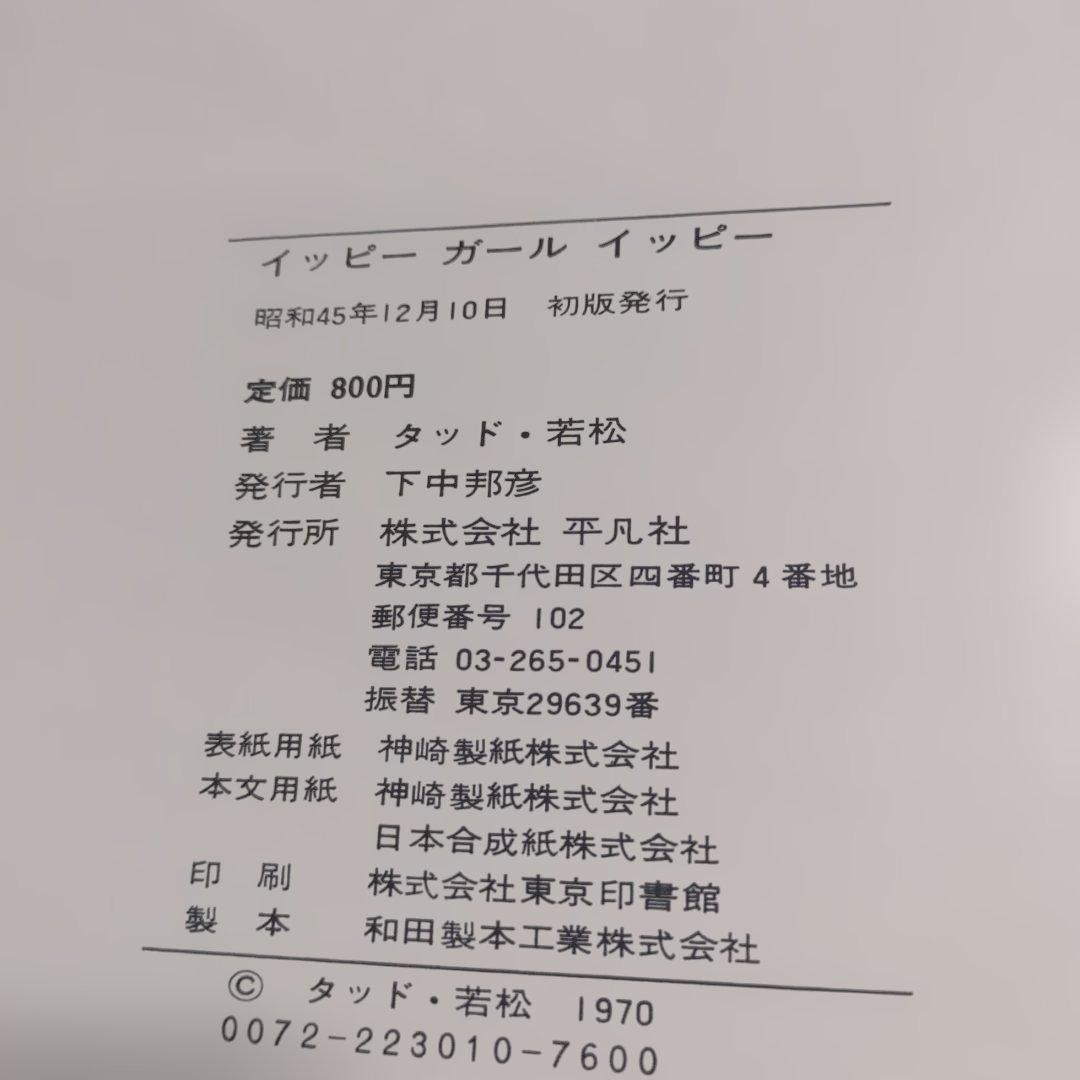 イッピー ガール イッピー
昭和45年12月10日 初版発行
定価 800円
著 者 タッド・若松
発行者 下中邦彦
発行所 株式会社 平凡社
東京都千代田区四番町4番地
郵便番号 102
電話 03-265-0451
振替 東京29639番
表紙用紙 神崎製紙株式会社
本文用紙 神崎製紙株式会社
日本合成紙株式会社
印 刷 株式会社東京印書館
製 本 和田製本工業株式会社
© タッド・若松 1970
0072-223010-7600